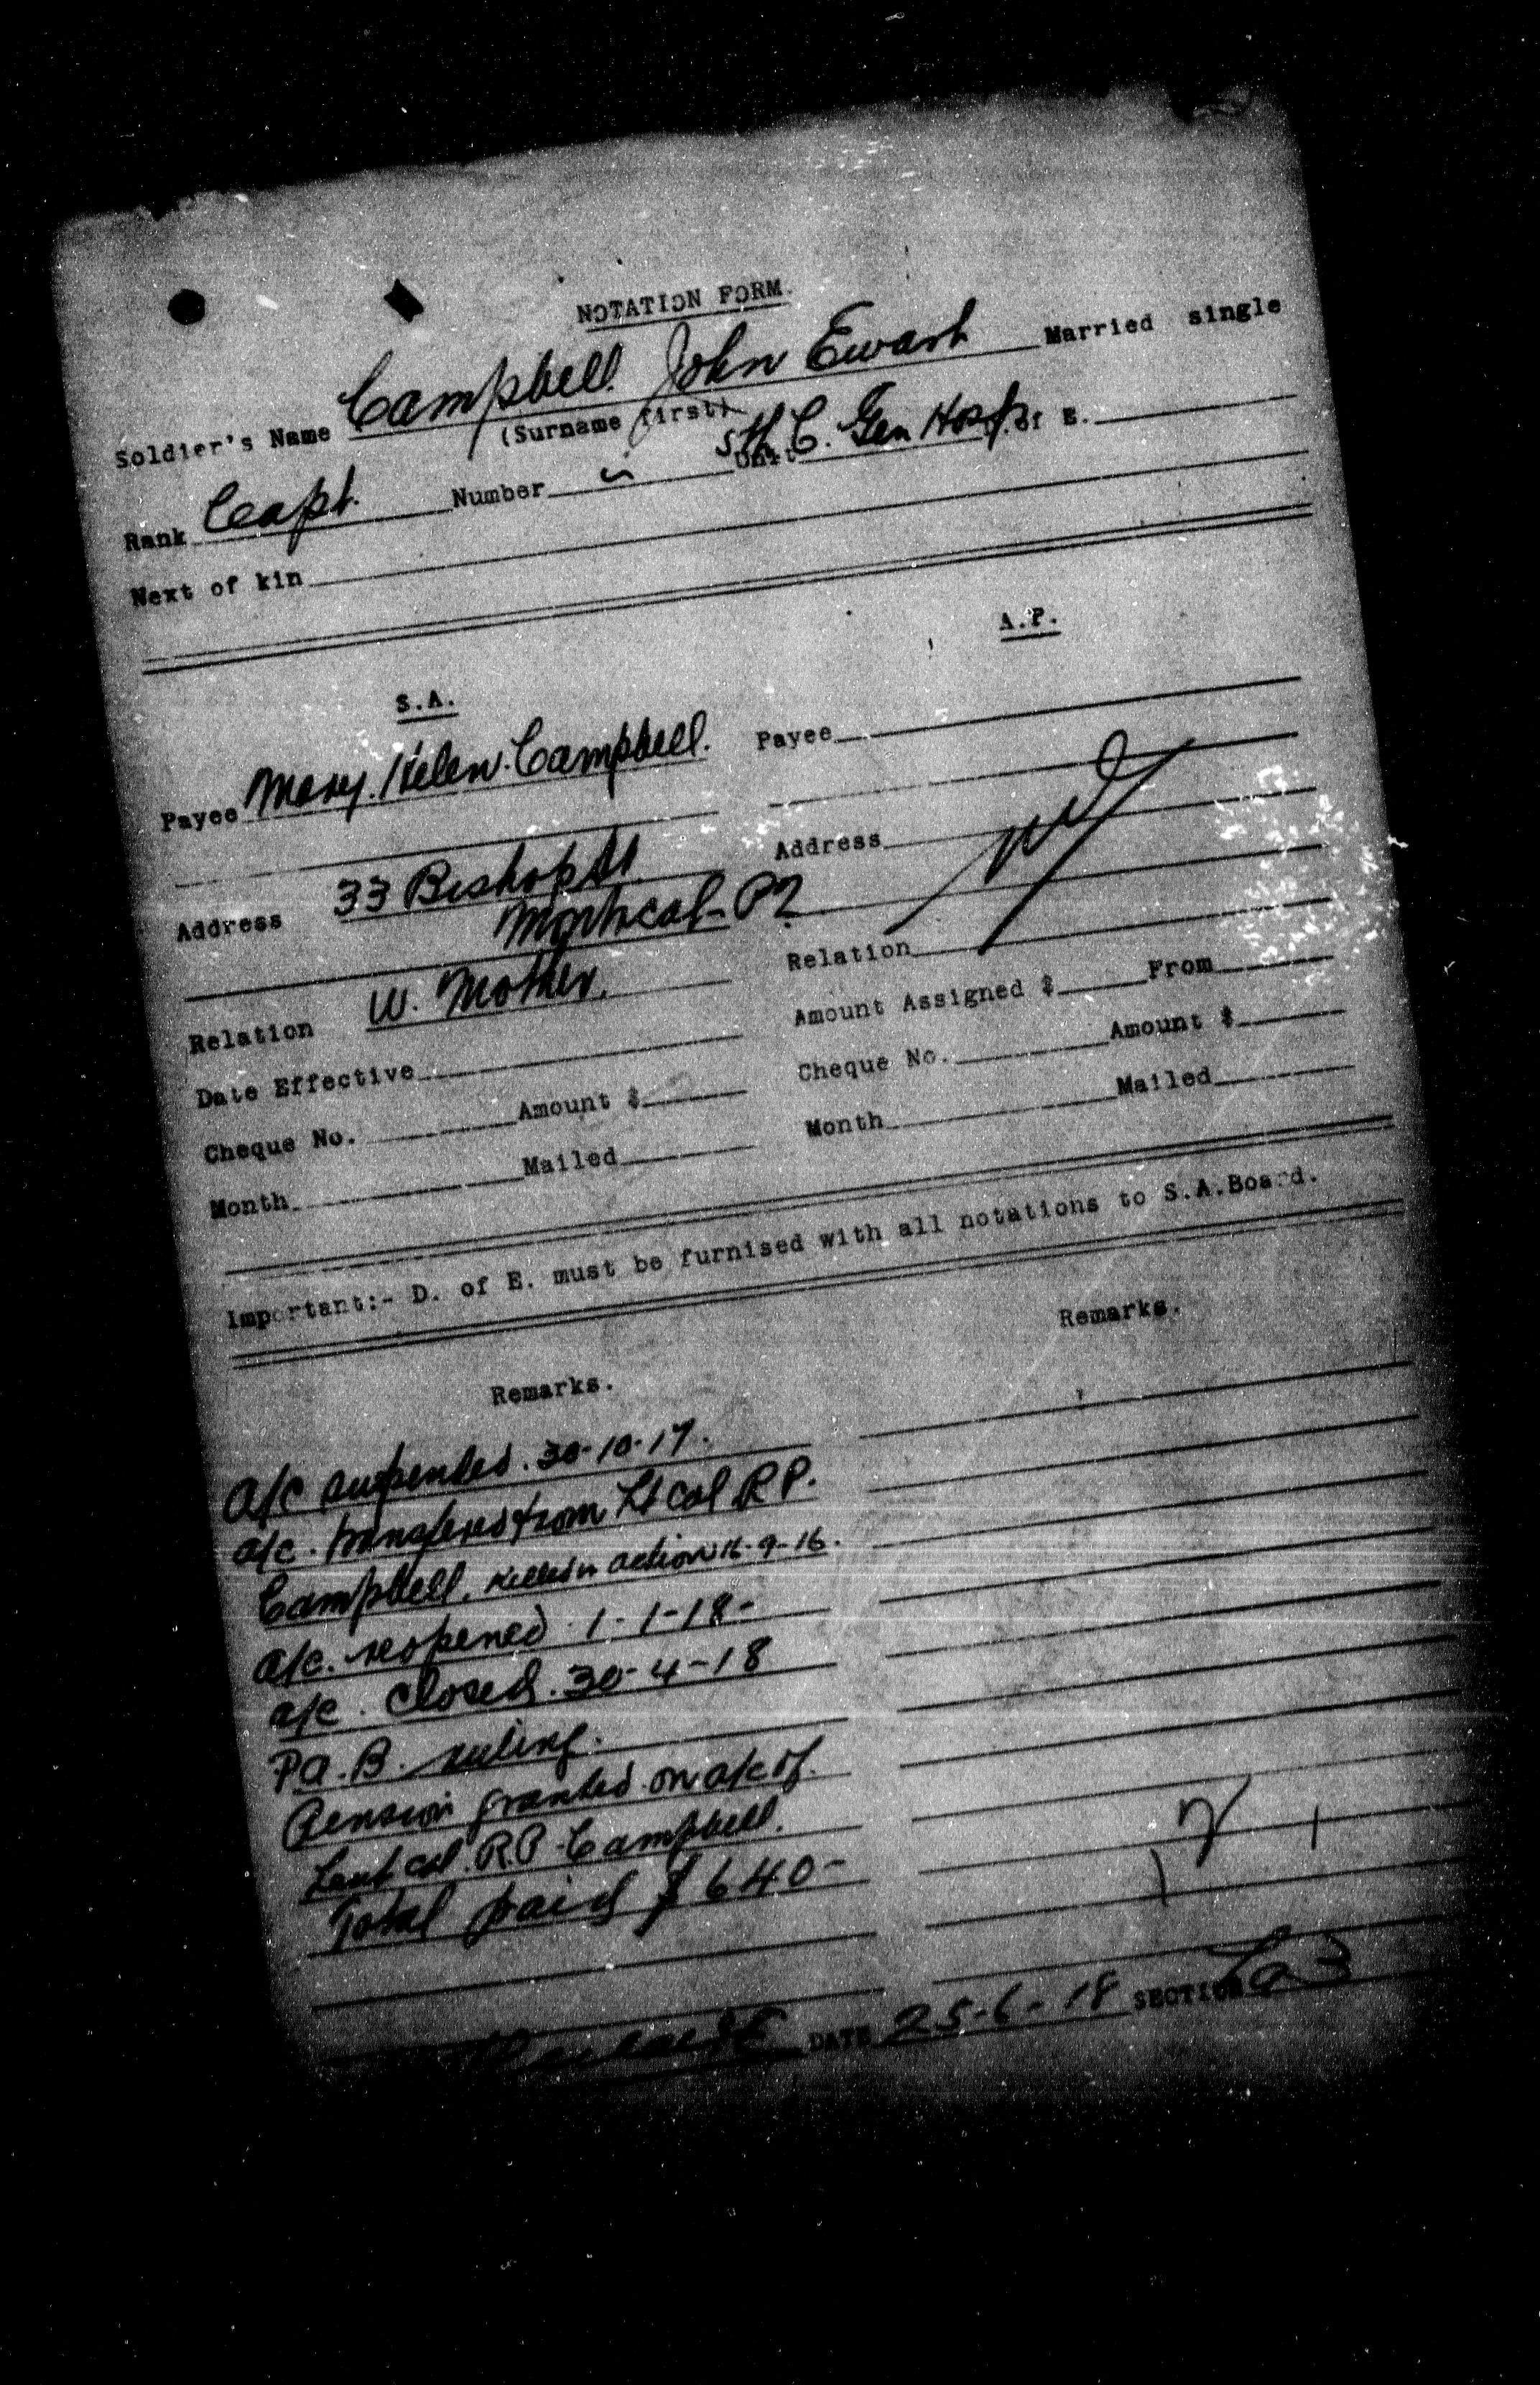 NOTATION FORM.
Soldier's Name Campbell. John Ewart Married single
(Surname first)
Rank Capt. Number Unit 5th C. Gen Hosp. of E.
Next of kin
S.A. A.P.
Payee Mary. Helen. Campbell. Payee
Address 33 Bishop St Address
Montreal - PQ
Relation W. Mother. Relation
Date Effective Amount Assigned $ From
Cheque No. Amount $ Cheque No. Amount $
Month Mailed Month Mailed
Important:- D. of E. must be furnised with all notations to S.A.Board.
Remarks. Remarks.
a/c suspended. 30-10-17.
a/c. transfered from Lt Col R P.
Campbell. Killed in action 16-9-16.
a/c. reopened 1-1-18-
a/c. closed. 30-4-18
P a. B. ruling.
Pension granted on a/c of.
Leut Col. R.P. Campbell.
Total paid $640-
DATE 25-6-18 SECTION